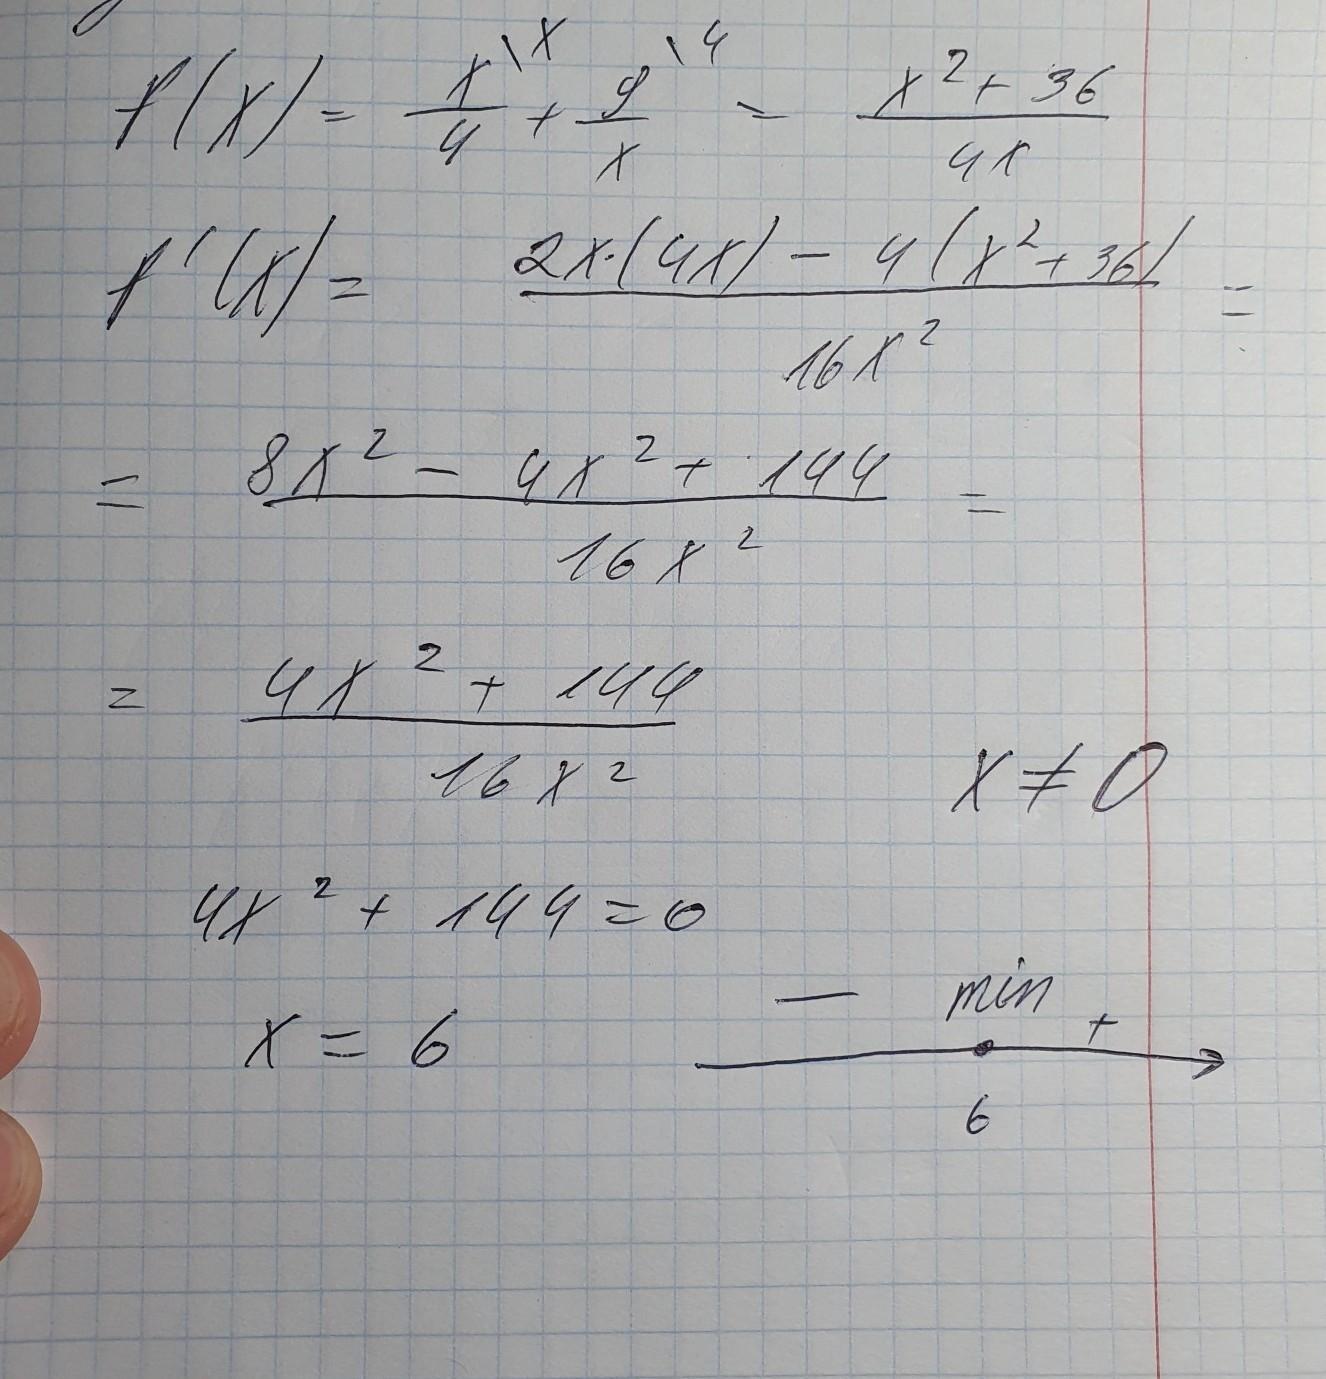 f(x) = x/4 \x + 9/x \4 = (x² + 36)/(4x)
f'(x) = (2x·(4x) − 4(x² + 36))/(16x²) =
= (8x² − 4x² + 144)/(16x²) =
= (4x² + 144)/(16x²)
x ≠ 0
4x² + 144 = 0
− min +
x = 6
6